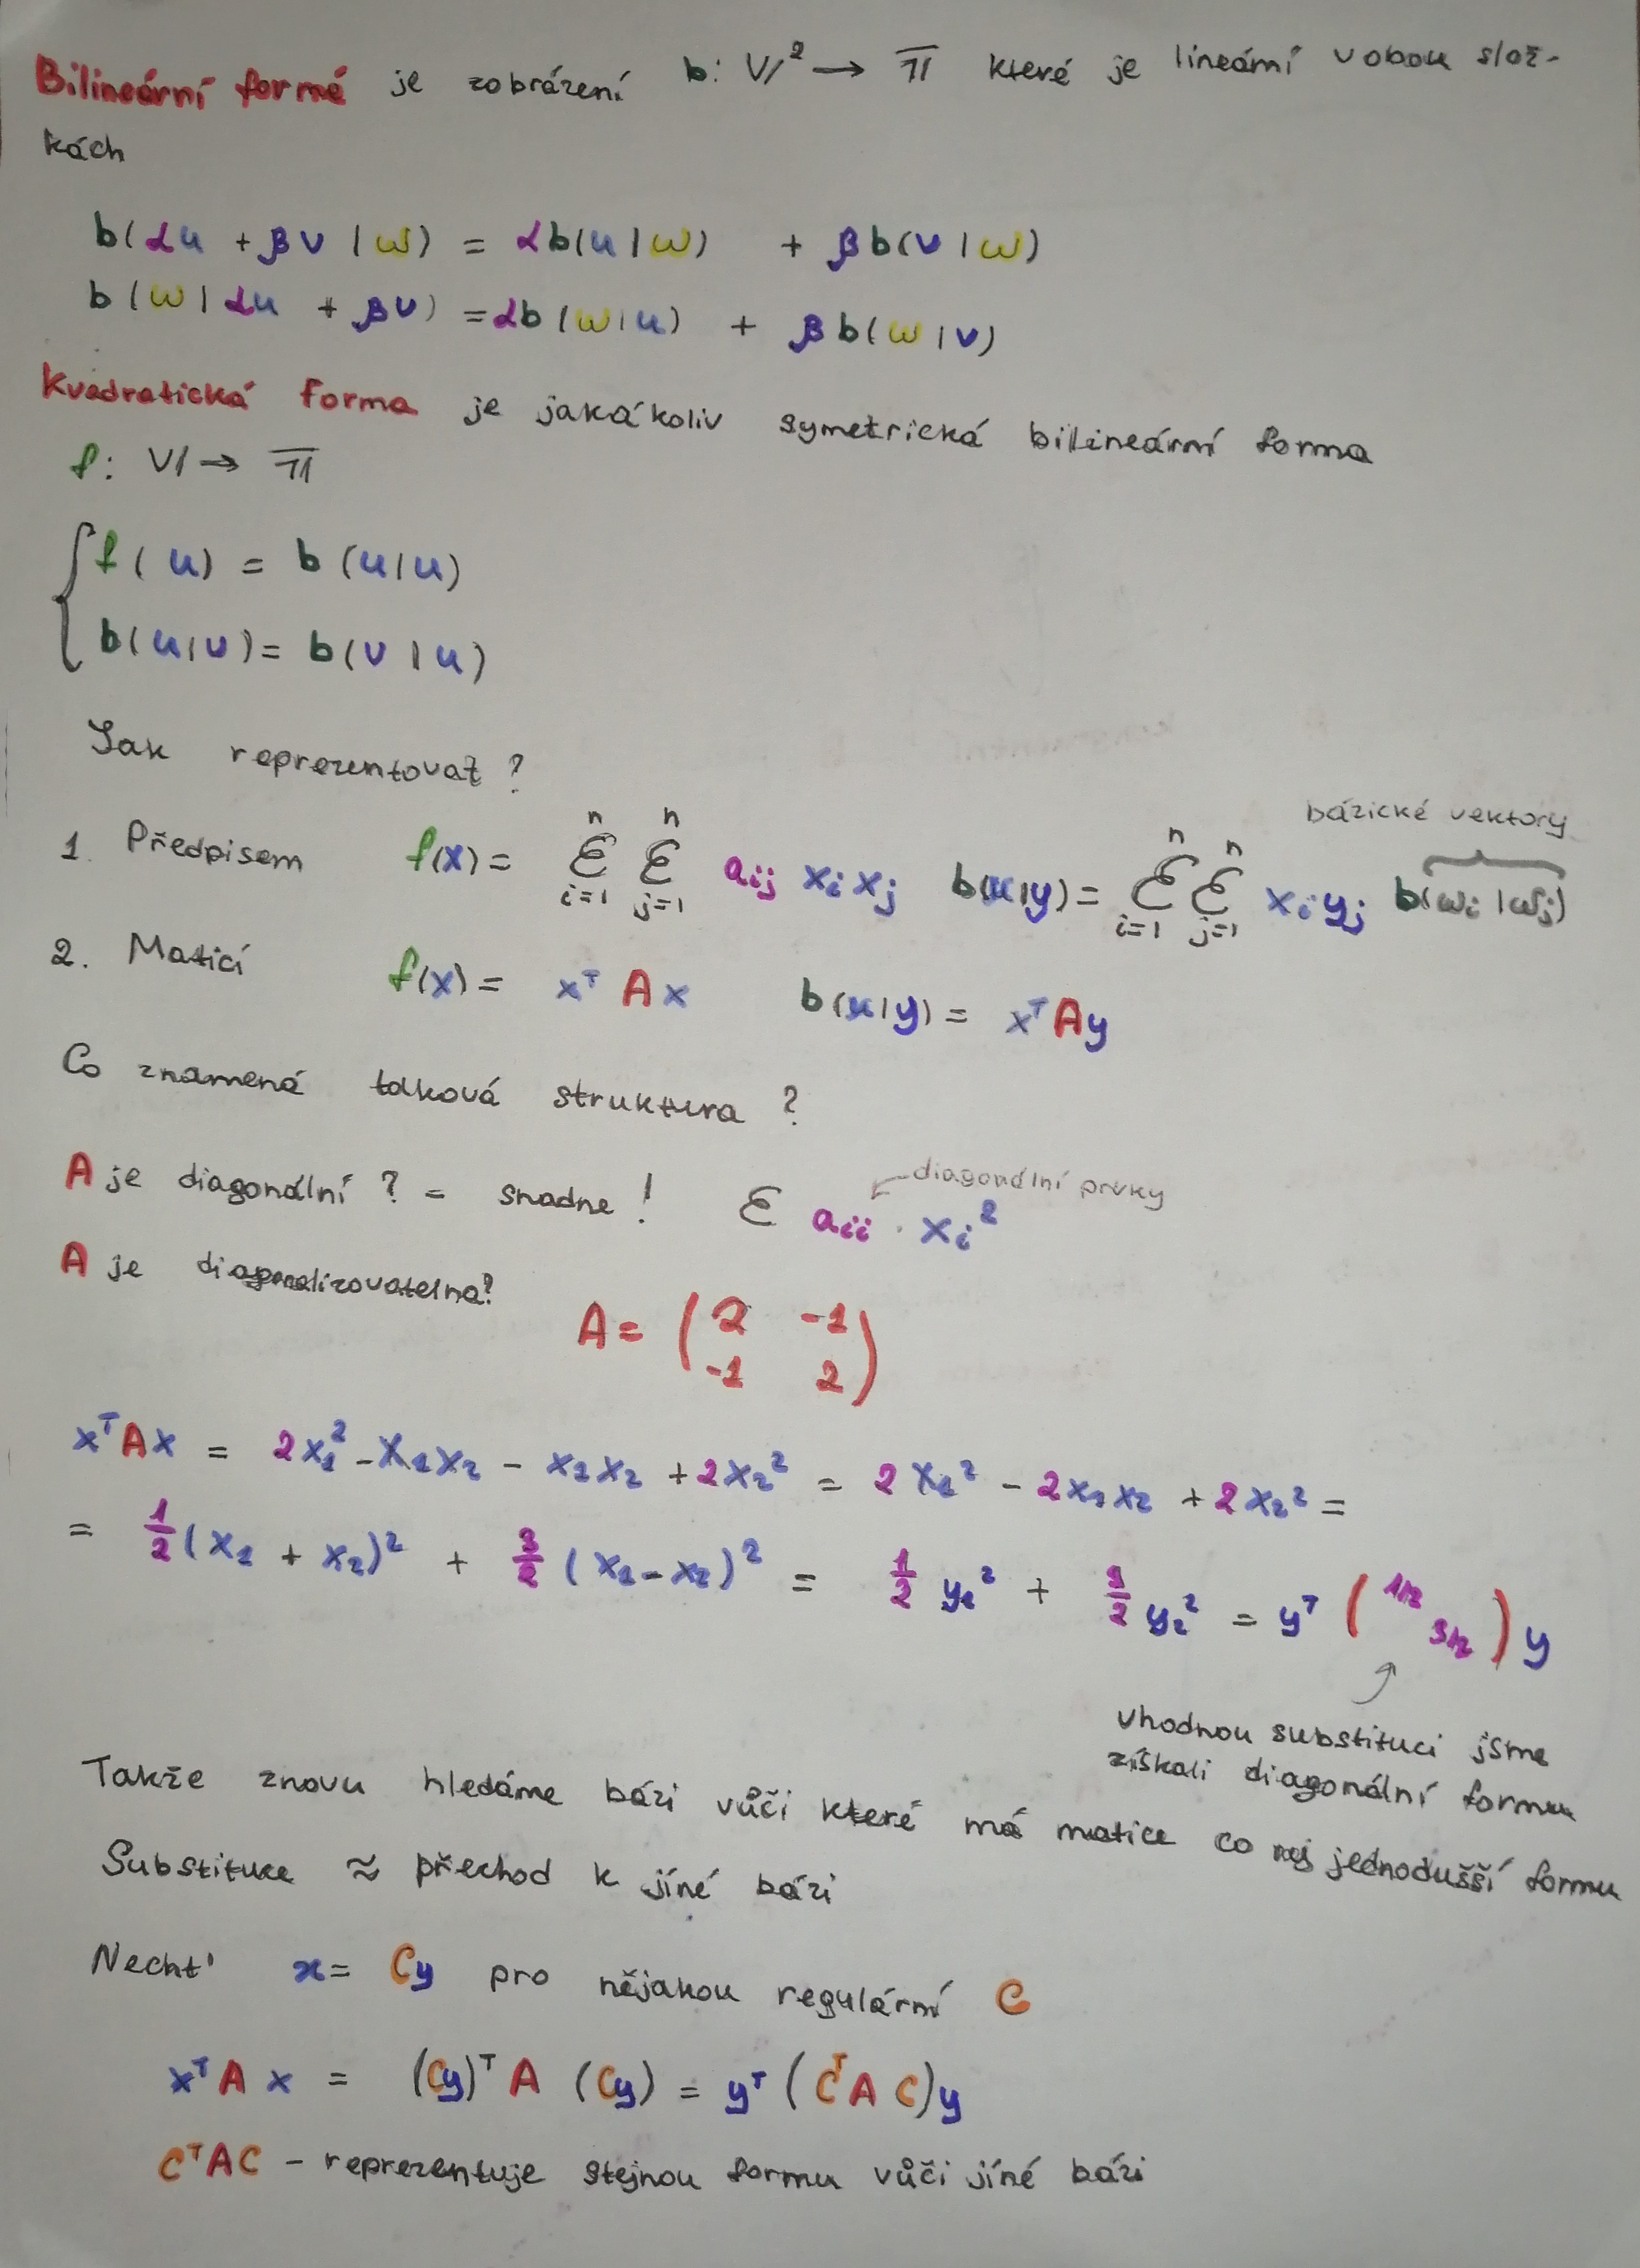 Bilineární formé je zobrázení b: V² → T které je lineární v obou slož-
kách
b(αu + βv | w) = αb(u | w) + βb(v | w)
b(w | αu + βv) = αb(w | u) + βb(w | v)
Kvadratická forma je jakákoliv symetrická bilineární forma
f: V → T
f(u) = b(u|u)
b(u|v) = b(v|u)
Jak reprezentovat?
bázické vektory
1. Předpisem f(x) = Σ_{i=1}^{n} Σ_{j=1}^{n} aij xi xj b(x|y) = Σ_{i=1}^{n} Σ_{j=1}^{n} xi yj b(wi | wj)
2. Maticí f(x) = xᵀ A x b(x|y) = xᵀ A y
Co znamená taková struktura?
A je diagonální? = snadne! Σ aii · xi² diagonální prvky
A je diagonalizovatelna?
A = (2 -1
-1 2)
xᵀAx = 2x1² - x1x2 - x1x2 + 2x2² = 2x1² - 2x1x2 + 2x2² =
= 1/2 (x1 + x2)² + 3/2 (x1 - x2)² = 1/2 y1² + 3/2 y2² = yᵀ (1/2 3/2) y
vhodnou substituci jsme
získali diagonální formu
Takže znovu hledáme bázi vůči které má matice co nej jednodušší formu
Substituce ≈ přechod k jíné bázi
Nechť x = Cy pro nějakou regulární C
xᵀA x = (Cy)ᵀ A (Cy) = yᵀ (CᵀA C)y
CᵀAC - reprezentuje stejnou formu vůči jíné bázi